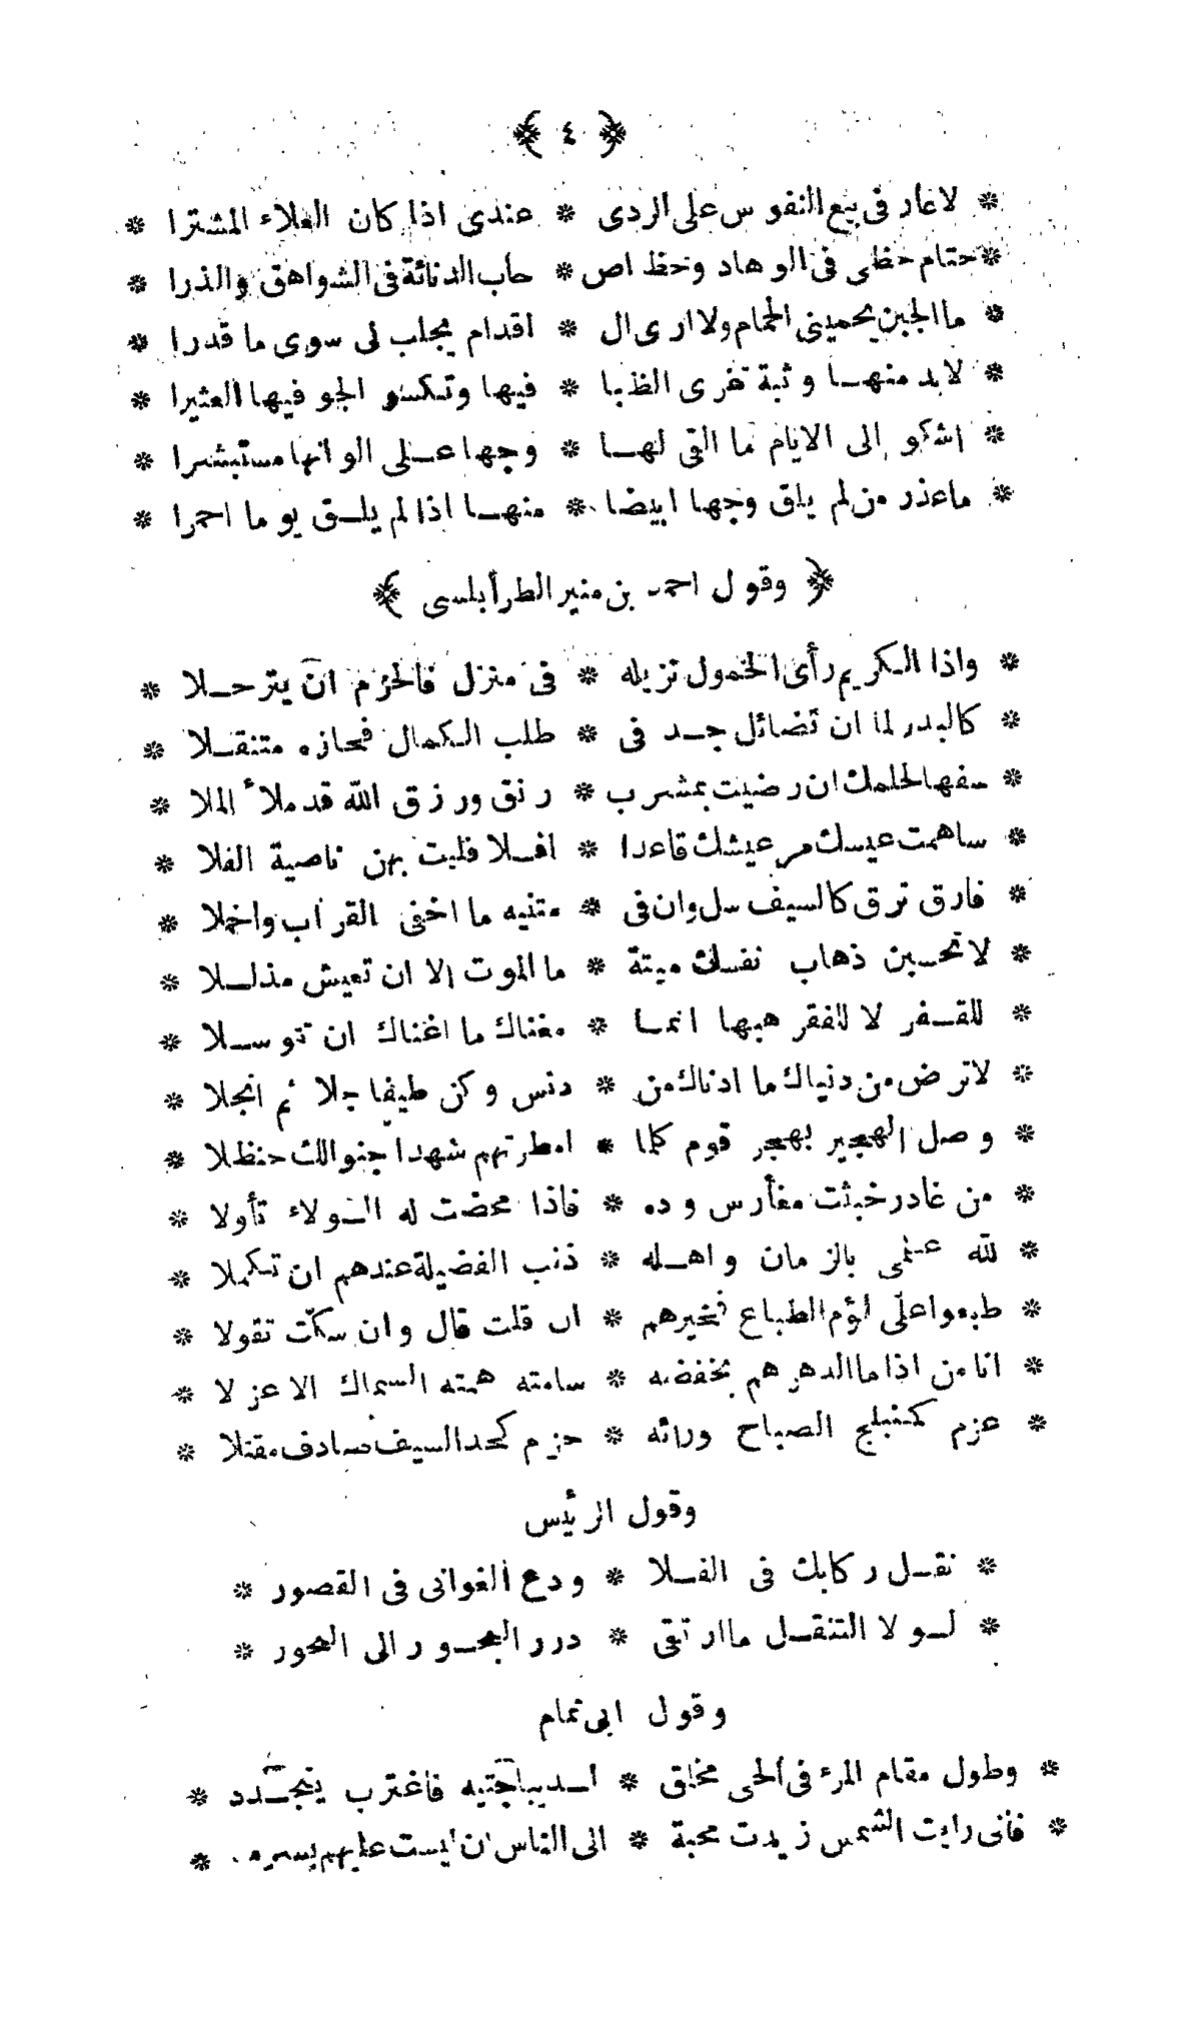 ﴿ ٤ ﴾
* لاعار فى بيع النفوس على الردى * عندى اذا كان العلاء المشترا *
* حتام حظى فى الوهاد وحظ اص * حاب الدنائة فى الشواهق والذرا *
* ما الجبن يحمينى الحمام ولا ارى ال * اقدام يجلب لى سوى ما قدرا *
* لابد منهـا وثبة تفرى الظبا * فيها وتكسو الجو فيها العثيرا *
* اشكو الى الايام ما القى لهـا * وجها عـلى الوانها مستبشرا *
* ماعذر من لم يلق وجها ابيضا * منهـا اذا لم يلـق يوما احمرا *
﴿ وقول احمد بن منير الطرأبلسى ﴾
* واذا الكريم رأى الخمول نزيله * فى منزل فالحزم ان يترحـلا *
* كالبدر لما ان تضائل جـد فى * طلب الكمال فحازه متنقـلا *
* سفها لحلمك ان رضيت بمشرب * رنق ورزق الله قد ملأ الملا *
* ساهمت عيسك مر عيشك قاعدا * افـلا فليت بهن ناصية الفلا *
* فارق ترق كالسيف سل وان فى * متنيه ما اخفى القراب واخملا *
* لاتحسبن ذهاب نفسك ميتة * ما الموت الا ان تعيش مذلـلا *
* للقـفر لا للفقر هبها انمـا * مغناك ما اغناك ان تتوسـلا *
* لاترض من دنياك ما ادناك من * دنس وكن طيفا جلا ثم انجلا *
* وصل الهجير بهجر قوم كلما * امطرتهم شهدا جنوا لك حنظلا *
* من غادر خبثت مغأرس وده * فاذا محضت له الـولاء تأولا *
* لله علمى بالزمان واهـله * ذنب الفضيلة عندهم ان تكملا *
* طبعوا على لؤم الطباع فخيرهم * ان قلت قال وان سكت تقولا *
* انا من اذا ما الدهر هم بخفضه * سامته همته السماك الاعزلا *
* عزم كمنبلج الصباح ورائه * حزم كحد السيف صادف مقتلا *
وقول الرئيس
* نقـل ركابك فى الفـلا * ودع الغوانى فى القصور *
* لـولا التنقـل ما ارتقى * درر البحـور الى النحور *
وقول ابى تمام
* وطول مقام المرء فى الحى مخلق * لـديباجتيه فاغترب يتجـدد *
* فانى رايت الشمس زيدت محبة * الى الناس ان ليست عليهم بسرمد *